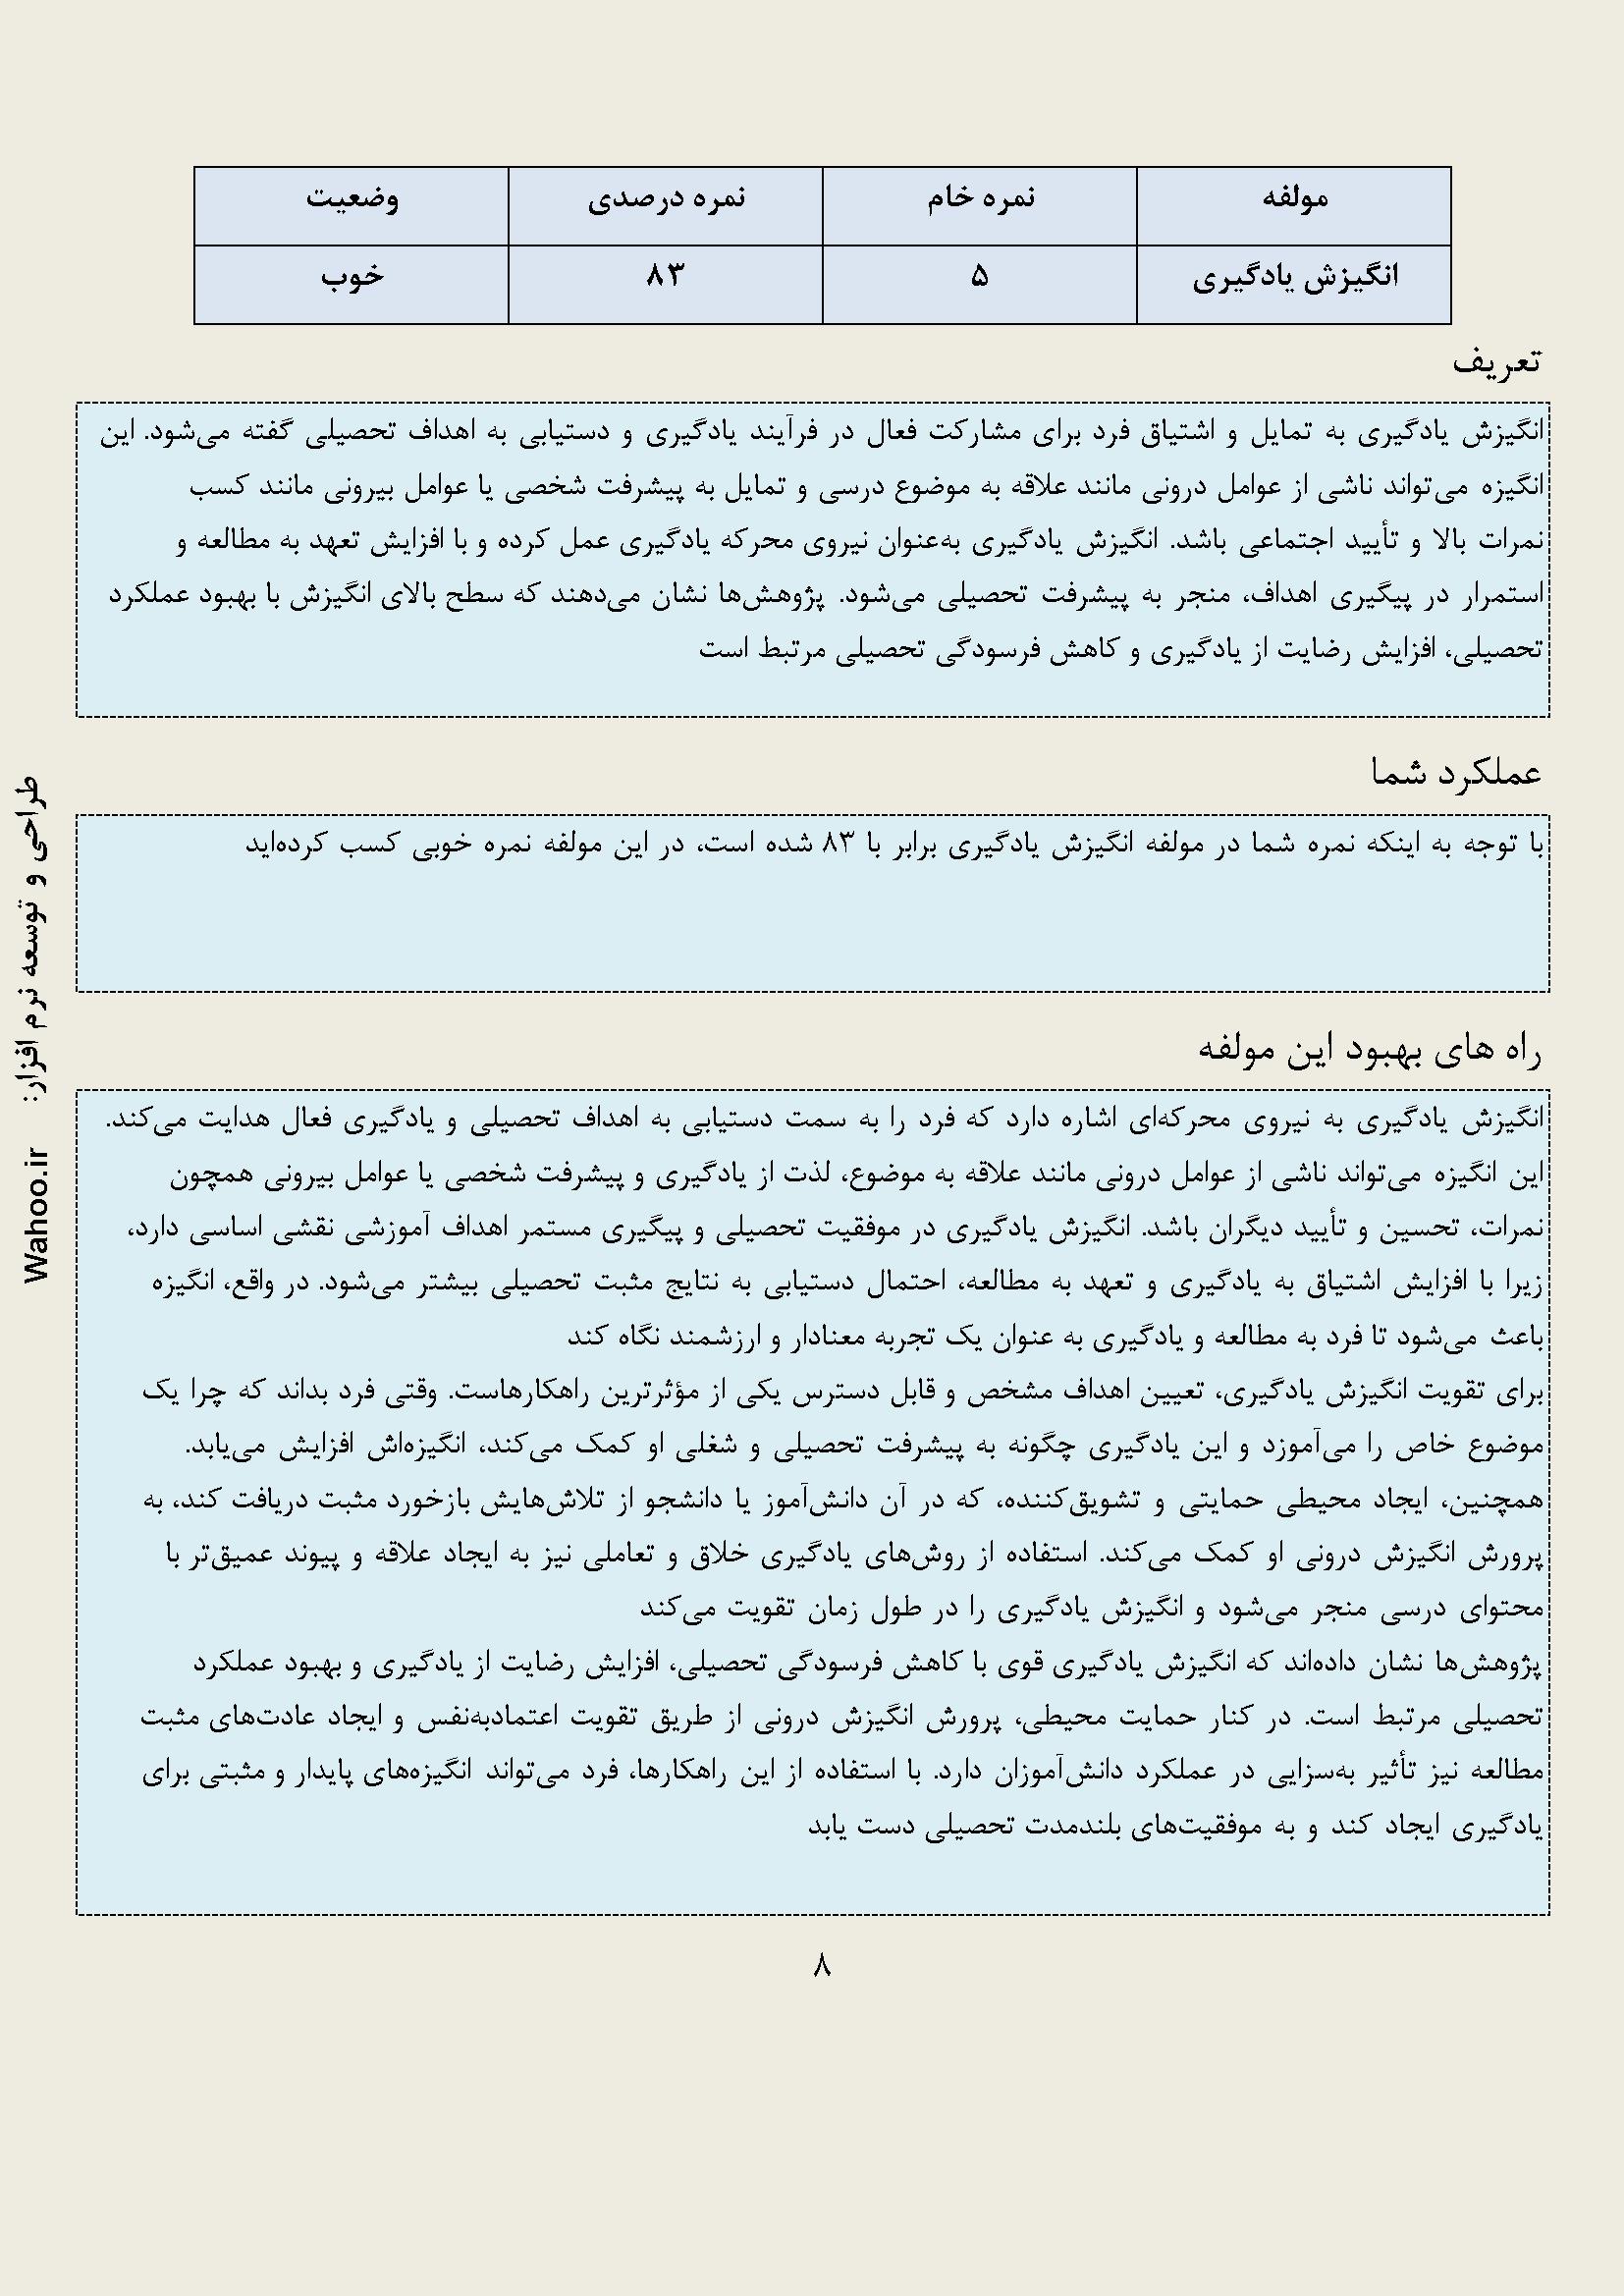 مولفه نمره خام نمره درصدی وضعیت
انگیزش یادگیری ۵ ۸۳ خوب
تعریف
انگیزش یادگیری به تمایل و اشتیاق فرد برای مشارکت فعال در فرآیند یادگیری و دستیابی به اهداف تحصیلی گفته می‌شود. این
انگیزه می‌تواند ناشی از عوامل درونی مانند علاقه به موضوع درسی و تمایل به پیشرفت شخصی یا عوامل بیرونی مانند کسب
نمرات بالا و تأیید اجتماعی باشد. انگیزش یادگیری به‌عنوان نیروی محرکه یادگیری عمل کرده و با افزایش تعهد به مطالعه و
استمرار در پیگیری اهداف، منجر به پیشرفت تحصیلی می‌شود. پژوهش‌ها نشان می‌دهند که سطح بالای انگیزش با بهبود عملکرد
تحصیلی، افزایش رضایت از یادگیری و کاهش فرسودگی تحصیلی مرتبط است
عملکرد شما
با توجه به اینکه نمره شما در مولفه انگیزش یادگیری برابر با ۸۳ شده است، در این مولفه نمره خوبی کسب کرده‌اید
راه های بهبود این مولفه
انگیزش یادگیری به نیروی محرکه‌ای اشاره دارد که فرد را به سمت دستیابی به اهداف تحصیلی و یادگیری فعال هدایت می‌کند.
این انگیزه می‌تواند ناشی از عوامل درونی مانند علاقه به موضوع، لذت از یادگیری و پیشرفت شخصی یا عوامل بیرونی همچون
نمرات، تحسین و تأیید دیگران باشد. انگیزش یادگیری در موفقیت تحصیلی و پیگیری مستمر اهداف آموزشی نقشی اساسی دارد،
زیرا با افزایش اشتیاق به یادگیری و تعهد به مطالعه، احتمال دستیابی به نتایج مثبت تحصیلی بیشتر می‌شود. در واقع، انگیزه
باعث می‌شود تا فرد به مطالعه و یادگیری به عنوان یک تجربه معنادار و ارزشمند نگاه کند
برای تقویت انگیزش یادگیری، تعیین اهداف مشخص و قابل دسترس یکی از مؤثرترین راهکارهاست. وقتی فرد بداند که چرا یک
موضوع خاص را می‌آموزد و این یادگیری چگونه به پیشرفت تحصیلی و شغلی او کمک می‌کند، انگیزه‌اش افزایش می‌یابد.
همچنین، ایجاد محیطی حمایتی و تشویق‌کننده، که در آن دانش‌آموز یا دانشجو از تلاش‌هایش بازخورد مثبت دریافت کند، به
پرورش انگیزش درونی او کمک می‌کند. استفاده از روش‌های یادگیری خلاق و تعاملی نیز به ایجاد علاقه و پیوند عمیق‌تر با
محتوای درسی منجر می‌شود و انگیزش یادگیری را در طول زمان تقویت می‌کند
پژوهش‌ها نشان داده‌اند که انگیزش یادگیری قوی با کاهش فرسودگی تحصیلی، افزایش رضایت از یادگیری و بهبود عملکرد
تحصیلی مرتبط است. در کنار حمایت محیطی، پرورش انگیزش درونی از طریق تقویت اعتمادبه‌نفس و ایجاد عادت‌های مثبت
مطالعه نیز تأثیر به‌سزایی در عملکرد دانش‌آموزان دارد. با استفاده از این راهکارها، فرد می‌تواند انگیزه‌های پایدار و مثبتی برای
یادگیری ایجاد کند و به موفقیت‌های بلندمدت تحصیلی دست یابد
۸
طراحی و توسعه نرم افزار: Wahoo.ir